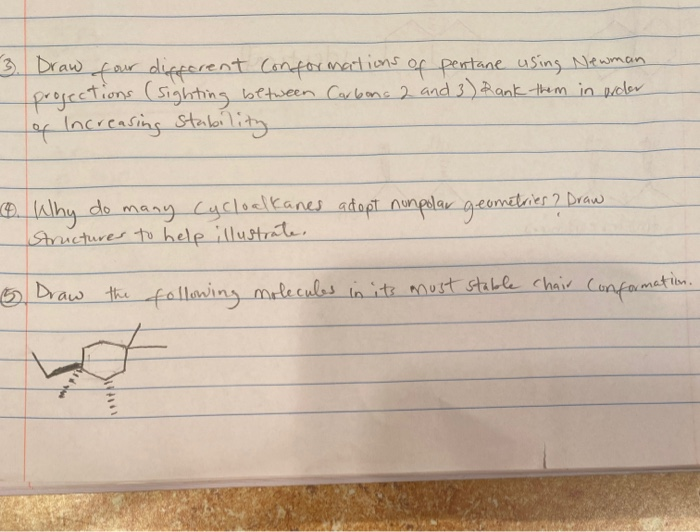 3. Draw four different Conformations of pentane using Newman
projections (Sighting between Carbons 2 and 3) Rank them in order
of Increasing Stability
4. Why do many Cycloalkanes adopt nonpolar geometries? Draw
Structures to help illustrate.
5. Draw the following molecules in its most stable chair Conformation.